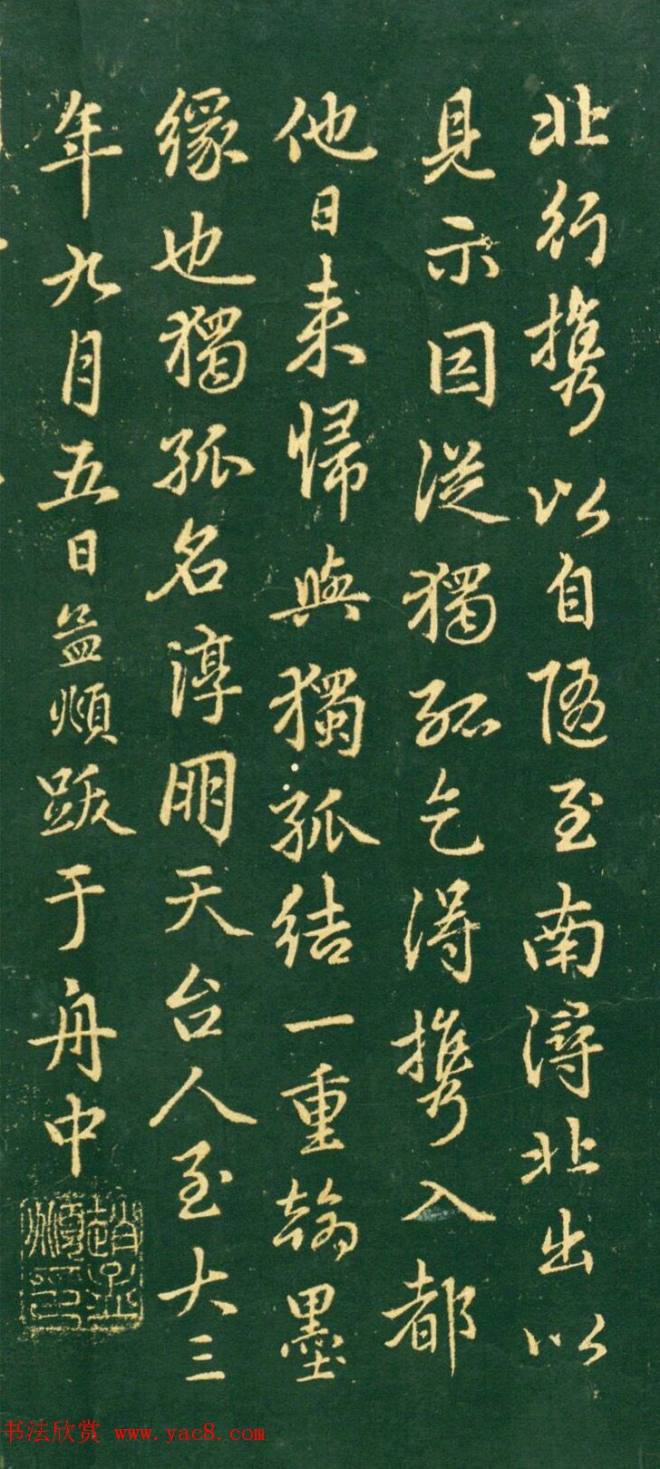 北行攜以自隨至南潯北出以
見示因從獨孤乞得攜入都
他日来歸與獨孤結一重翰墨
緣也獨孤名淳朋天台人至大三
年九月五日孟頫跋于舟中
趙孟頫印
书法欣赏 www.yac8.com